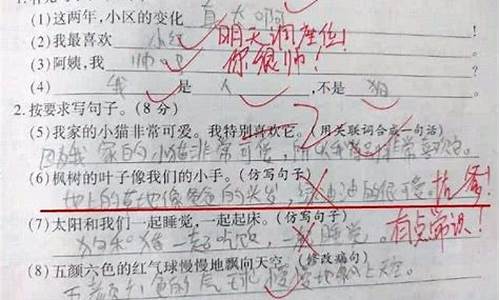 (1)这两年,小区的变化 真大啊
(2)我最喜欢 小红 明天调座位!
(3)阿姨,我 帅吧 你很帅!
(4) 我 是 人 ,不是 狗
2.按要求写句子。(8分)
(5)我家的小猫非常可爱。我特别喜欢它。(用关联词合成一句话)
因为我家的小猫非常可爱,所以我 非常喜欢它。
(6)枫树的叶子像我们的小手。(仿写句子)
地上的草地像爸爸的头发,绿油油的很可爱。抗爹!
(7)太阳和我们一起睡觉,一起起床。(仿写句子)
狗和猪一起吃饭,一起睡觉。有点常识!
(8)五颜六色的红气球慢慢地飘向天空。(修改病句)
五颜六色的气球慢慢地飘上天空。